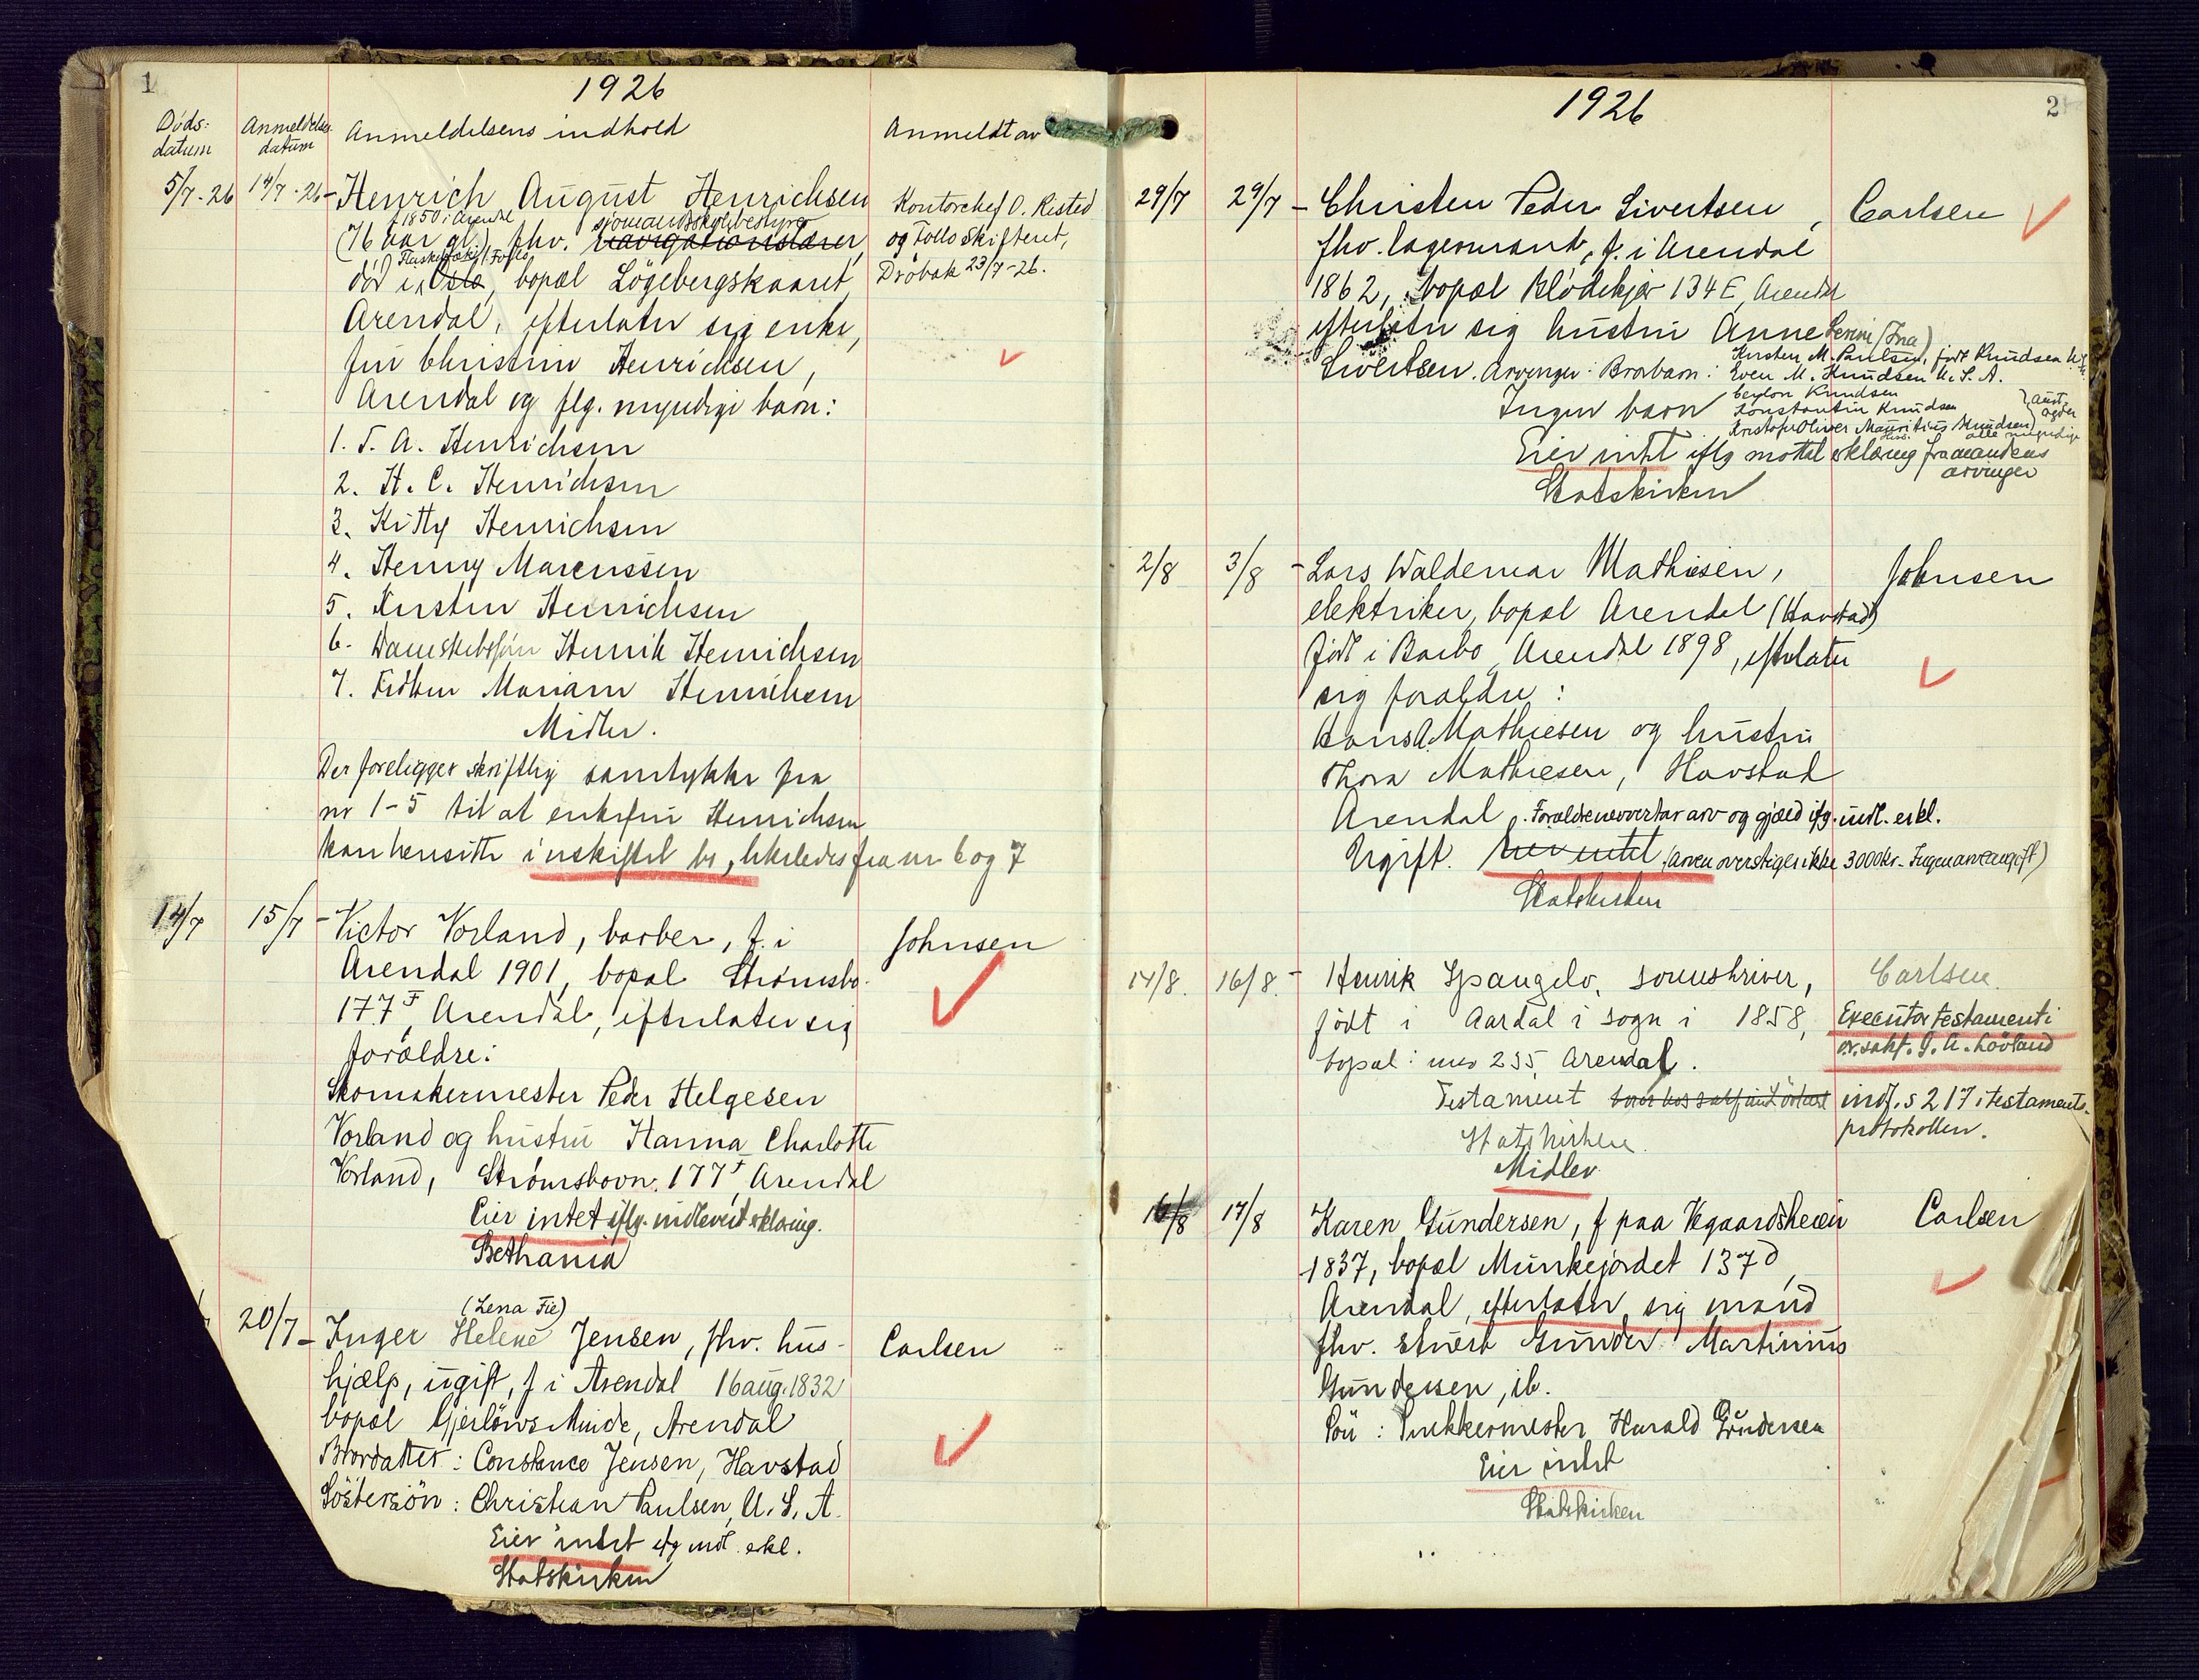 1
1926
Døds-
datum
Anmeldelses
datum
Anmeldelsens indhold
Anmeldt av
5/7-26
14/7-26
Henrich August Henrichsen
f 1850 i Arendal
sjømandsskolebestyrer
(76 aar gl.), fhv. navigationslærer,
Follo
død i Oslo, bopæl Lögebergskaaret,
Arendal, efterlater sig enke,
fru Christine Henrichsen,
Arendal og flg. myndige barn:
1. T. A. Henrichsen
2. H. C. Henrichsen
3. Kitty Henrichsen
4. Henny Marcussen
5. Kirsten Henrichsen
6. Henrik Henrichsen
7. Frøken Mariane Henrichsen
Midler.
Der foreligger skriftlig samtykke fra
nr 1-5 til at enkefru Henrichsen
kan hensitte i uskiftet bo, likeledes fra nr 6 og 7
Kontorchef O. Risted
og Follo skifteret,
Drøbak 23/7-26.
14/7
15/7
Victor Vorland, barber, f. i
Arendal 1901, bopæl Strømsbo
177 F, Arendal, efterlater sig
forældre:
Skomakermester Peder Helgesen
Vorland og hustru Hanna Charlotte
Vorland, Strømsbovn. 177 F, Arendal
Eier intet iflg. indlevert erklæring.
Bethania
Johnsen
20/7
(Lena Fie)
Inger Helene Jensen, fhv. hus-
hjælp, ugift, f i Arendal 16 aug. 1832
bopæl Gjerløws Minde, Arendal
Brordatter: Constance Jensen, Havstad
Søstersøn: Christian Paulsen, U. S. A.
Eier intet iflg indl. erkl.
Statskirken
Carlsen
2
1926
29/7
29/7
Christen Peder Sivertsen,
fhv. lagermand, f. i Arendal
1862, bopæl Klödekjær 134 E, Arendal
efterlater sig hustru Anne Serine (Ina)
Sivertsen. Arvinger: Brorbarn:
Kirsten M. Paulsen, født Knudsen
Even M. Knudsen U. S. A.
Knudsen
Konstantin Knudsen
Kristofer Oliver Mauritius Knudsen
Aust-
Agder
alle myndige
Ingen barn
Eier intet iflg mottat erklæring fra mandens
arvinger
Statskirken
Carlsen
2/8
3/8
Lars Waldemar Mathisen,
elektriker, bopæl Arendal (Havstad)
født i Barbo, Arendal 1898, efterlater
sig forældre:
Hans A. Mathiesen og hustru
Thora Mathiesen, Havstad
Arendal. Forældrene overtar arv og gjæld iflg. indl. erkl.
Ugift. Eier intet (arven overstiger ikke 3000 kr. - Ingen arveavgift)
Statskirken
Johnsen
14/8.
16/8.
Henrik Spangelo, sorenskriver,
født i Aardal i Sogn i 1858,
bopæl: mno 235, Arendal.
Testament
Statskirken
Midler
Carlsen.
Executor testamenti
o.r.sakf. J. A. Løvland
indf. s 217 i testaments-
protokollen.
16/8
17/8
Karen Gundersen, f paa Vegaardsheien
1837, bopæl Munkejordet 137 d,
Arendal, efterlater sig mand
fhv. stuert Gunder Martinius
Gundersen, ib.
Søn: Snekkermester Harald Gundersen
Eier intet
Statskirken
Carlsen